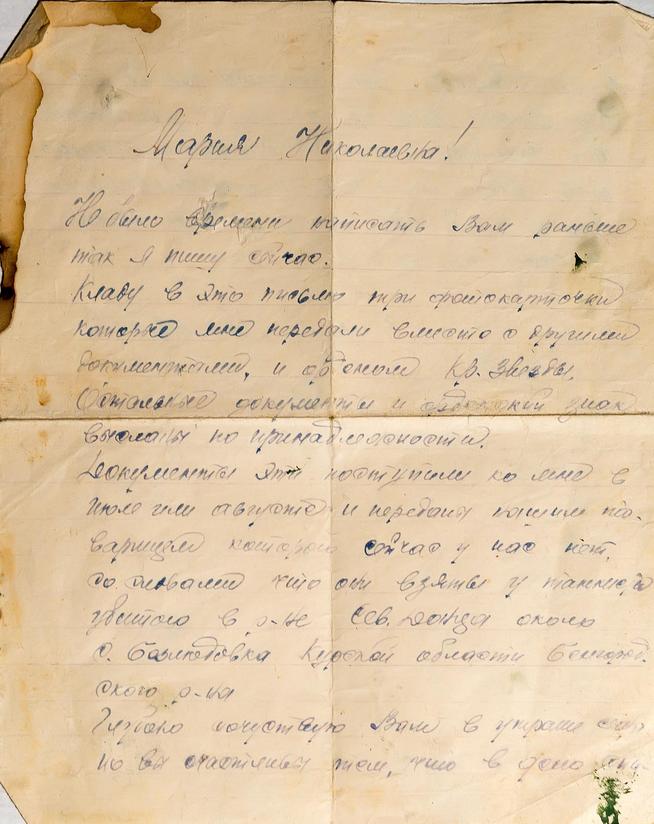 Мария Николаевна!
Не было времени написать Вам раньше
так я пишу сейчас.
Кладу в это письмо три фотокарточки
которые мне передали вместе с другими
документами, и орденом Кр. Звезды.
Остальные документы и знак
высланы по принадлежности.
Документы эти поступили ко мне в
июле или августе и переданы нашим то-
варищем которого сейчас у нас нет,
со словами что они взяты у танкиста
убитого в р-не Сев. Донца около
с. Безлюдовка Курской области Белгород-
ского р-на
Глубоко сочувствую Вам в утрате
но вы счастливы тем, что в